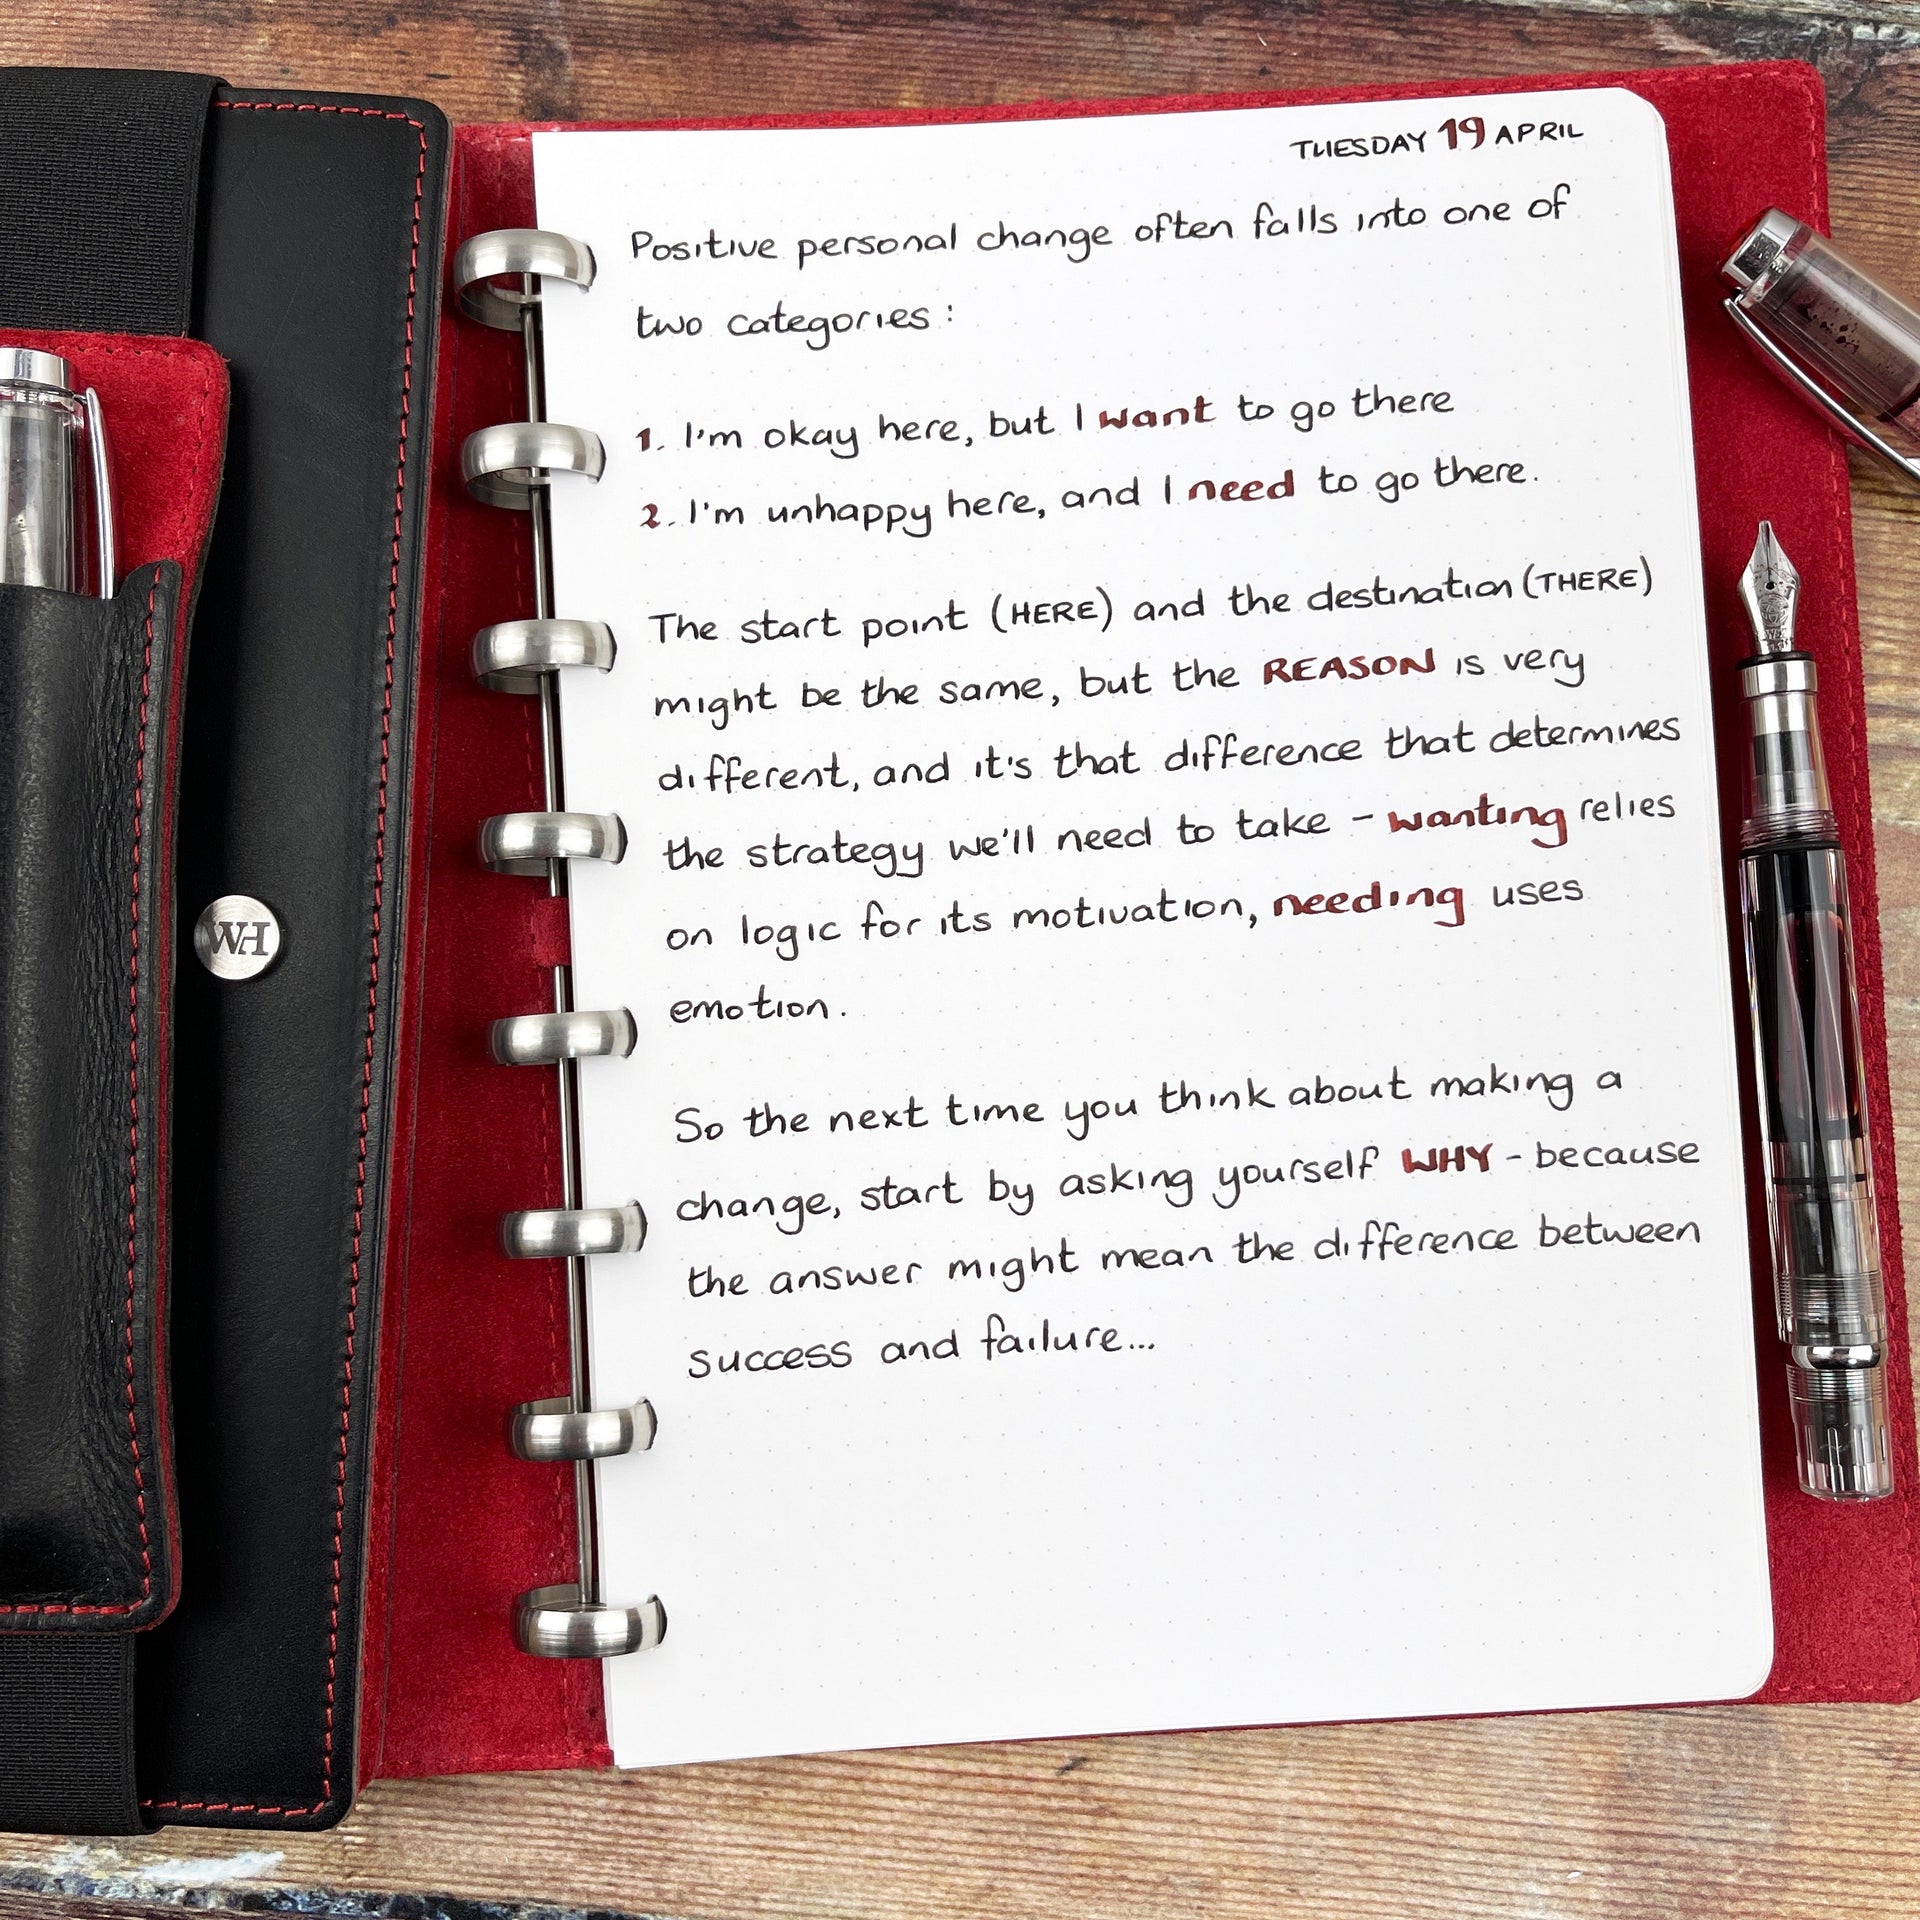 TUESDAY 19 APRIL
Positive personal change often falls into one of
two categories:
1. I'm okay here, but I want to go there
2. I'm unhappy here, and I need to go there.
The start point (HERE) and the destination (THERE)
might be the same, but the REASON is very
different, and it's that difference that determines
the strategy we'll need to take - wanting relies
on logic for its motivation, needing uses
emotion.
So the next time you think about making a
change, start by asking yourself WHY - because
the answer might mean the difference between
success and failure...
WH